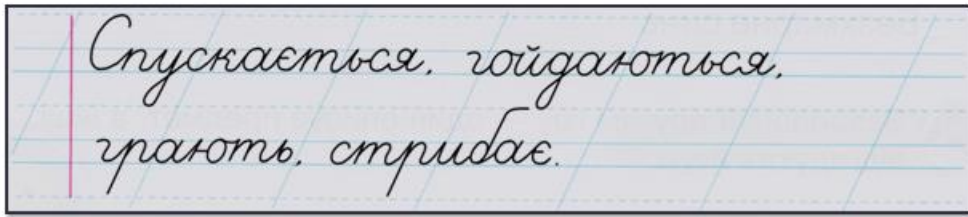 Спускається, гойдаються,
грають, стрибає.